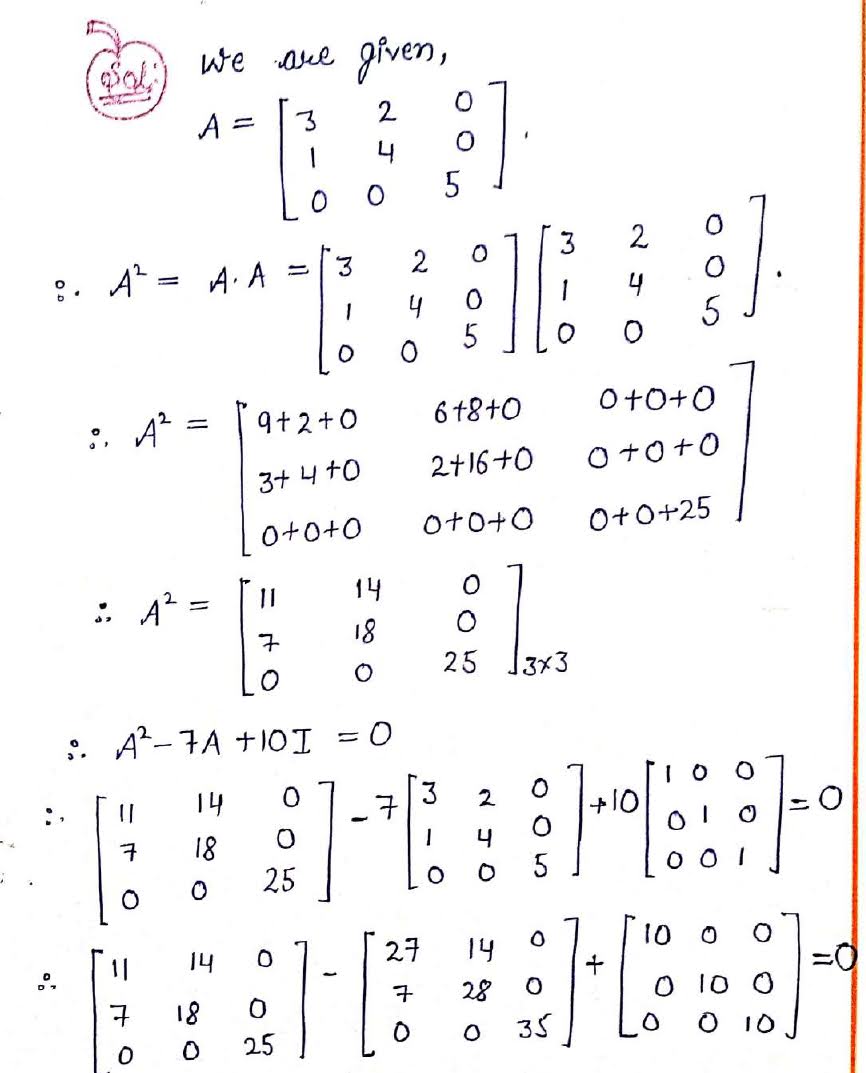 Sol: We are given,
A = [3 2 0
1 4 0
0 0 5].
∴ A² = A·A = [3 2 0 1 4 0 0 0 5] [3 2 0 1 4 0 0 0 5].
∴ A² = [9+2+0 6+8+0 0+0+0
3+4+0 2+16+0 0+0+0
0+0+0 0+0+0 0+0+25]
∴ A² = [11 14 0
7 18 0
0 0 25]3×3
∴ A²-7A+10I = 0
∴ [11 14 0 7 18 0 0 0 25] - 7[3 2 0 1 4 0 0 0 5] +10[1 0 0 0 1 0 0 0 1] = 0
∴ [11 14 0 7 18 0 0 0 25] - [27 14 0 7 28 0 0 0 35] + [10 0 0 0 10 0 0 0 10] = 0